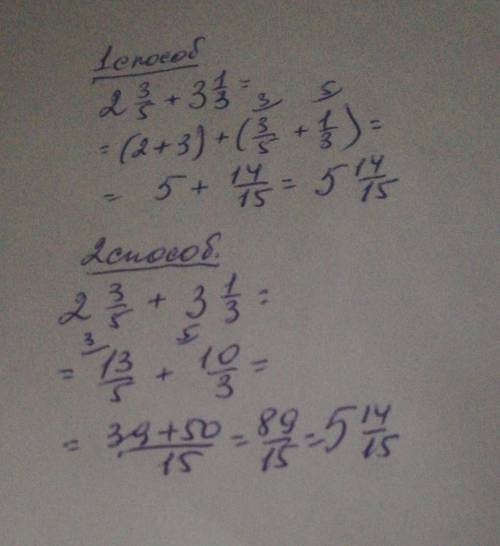 1 способ
2 3/5 + 3 1/3 =
= (2+3) + (3/5 + 1/3) =
3 5
= 5 + 14/15 = 5 14/15
2 способ.
2 3/5 + 3 1/3 =
3 5
= 13/5 + 10/3 =
= 39+50/15 = 89/15 = 5 14/15